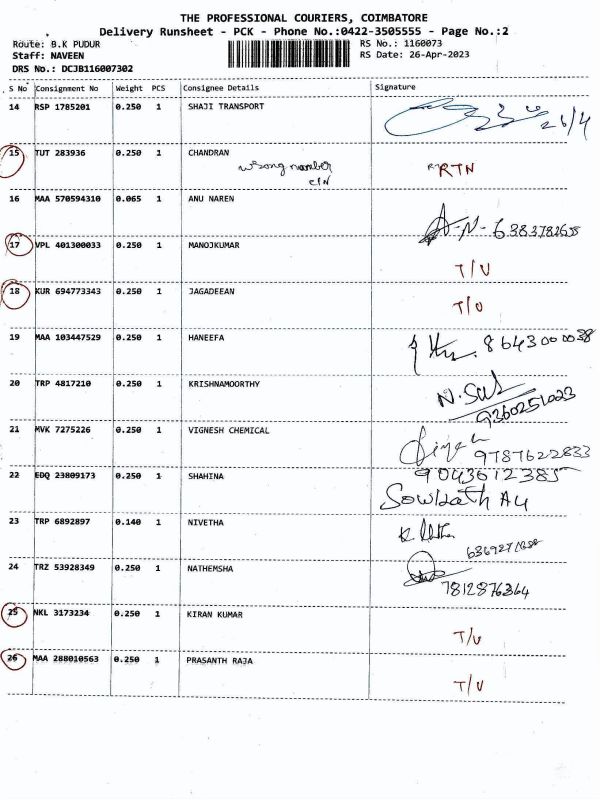 THE PROFESSIONAL COURIERS, COIMBATORE
Delivery Runsheet - PCK - Phone No.:0422-3505555 - Page No.:2
Route: B.K PUDUR
RS No.: 1160073
Staff: NAVEEN
RS Date: 26-Apr-2023
DRS No.: DCJB116007302
S No Consignment No Weight PCS Consignee Details Signature
14 RSP 1785201 0.250 1 SHAJI TRANSPORT
26/4
15 TUT 283936 0.250 1 CHANDRAN
wrong number RTN
16 MAA 570594310 0.065 1 ANU NAREN
A-N-
17 VPL 401300033 0.250 1 MANOJKUMAR
T/U
18 KUR 694773343 0.250 1 JAGADEEAN
T/U
19 MAA 103447529 1 HANEEFA
8643000038
20 TRP 4817210 0.250 1 KRISHNAMOORTHY
9360251023
21 MVK 7275226 0.250 1 VIGNESH CHEMICAL
9787622833
22 EDQ 23809173 0.250 1 SHAHINA
9043612385
Sowkath Ali
23 TRP 6892897 0.140 1 NIVETHA
24 TRZ 53928349 0.250 1 NATHEMSHA
7812876364
25 NKL 3173234 0.250 1 KIRAN KUMAR
T/U
26 MAA 288010563 0.250 1 PRASANTH RAJA
T/U